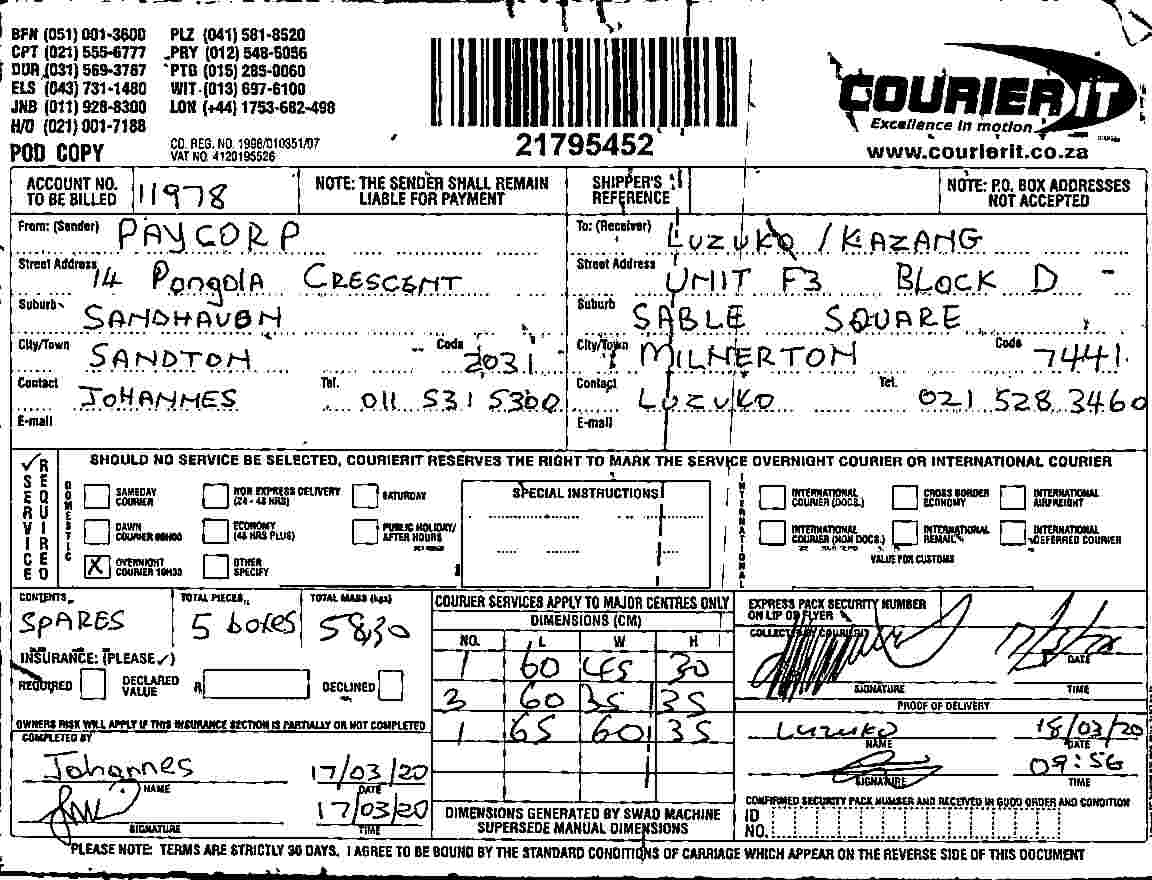 BFN (051) 001-3600 PLZ (041) 581-8520
CPT (021) 555-6777 PRY (012) 548-5056
DUR (031) 569-3787 PTG (015) 285-0060
ELS (043) 731-1480 WIT (013) 697-6100
JNB (011) 928-8300 LON (+44) 1753-682-498
H/O (021) 001-7188
POD COPY
CO. REG. NO. 1998/010351/07
VAT NO. 4120195526
21795452
COURIER IT
Excellence in motion
www.courierit.co.za
ACCOUNT NO. TO BE BILLED 11978
NOTE: THE SENDER SHALL REMAIN LIABLE FOR PAYMENT
SHIPPER'S REFERENCE
NOTE: P.O. BOX ADDRESSES NOT ACCEPTED
From: (Sender) PAYCORP
Street Address 14 Pongola CRESCENT
Suburb SANDHAVEN
City/Town SANDTON Code 2031
Contact JOHANNES Tel. 011 531 5300
E-mail
To: (Receiver) LUZUKO / KAZANG
Street Address UNIT F3 BLOCK D -
Suburb SABLE SQUARE
City/Town MILNERTON Code 7441
Contact LUZUKO Tel. 021 528 3460
E-mail
SERVICE REQUIRED
SHOULD NO SERVICE BE SELECTED, COURIERIT RESERVES THE RIGHT TO MARK THE SERVICE OVERNIGHT COURIER OR INTERNATIONAL COURIER
DOMESTIC
SAMEDAY COURIER
NON EXPRESS DELIVERY (24 - 48 HRS)
SATURDAY
DAWN COURIER
ECONOMY (48 HRS PLUS)
PUBLIC HOLIDAY/ AFTER HOURS
X OVERNIGHT COURIER 10H30
OTHER SPECIFY
SPECIAL INSTRUCTIONS
INTERNATIONAL
INTERNATIONAL COURIER (DOCS.)
CROSS BORDER ECONOMY
INTERNATIONAL AIRFREIGHT
INTERNATIONAL COURIER (NON DOCS.)
INTERNATIONAL REMAIL
INTERNATIONAL DEFERRED COURIER
VALUE FOR CUSTOMS
CONTENTS SPARES
TOTAL PIECES 5 boxes
TOTAL MASS (kgs) 58,30
INSURANCE: (PLEASE ✓)
REQUIRED DECLARED VALUE R DECLINED
OWNERS RISK WILL APPLY IF THIS INSURANCE SECTION IS PARTIALLY OR NOT COMPLETED
COMPLETED BY
Johannes 17/03/20
NAME DATE
17/03/20
SIGNATURE TIME
COURIER SERVICES APPLY TO MAJOR CENTRES ONLY
DIMENSIONS (CM)
NO. L W H
1 60 45 30
3 60 35 35
1 65 60 35
DIMENSIONS GENERATED BY SWAD MACHINE SUPERSEDE MANUAL DIMENSIONS
EXPRESS PACK SECURITY NUMBER ON LIP OF FLYER
COLLECTED BY COURIER
DATE
SIGNATURE TIME
PROOF OF DELIVERY
Luzuko 18/03/20
NAME DATE
09:56
SIGNATURE TIME
CONFIRMED SECURITY PACK NUMBER AND RECEIVED IN GOOD ORDER AND CONDITION
ID NO.
PLEASE NOTE: TERMS ARE STRICTLY 30 DAYS. I AGREE TO BE BOUND BY THE STANDARD CONDITIONS OF CARRIAGE WHICH APPEAR ON THE REVERSE SIDE OF THIS DOCUMENT